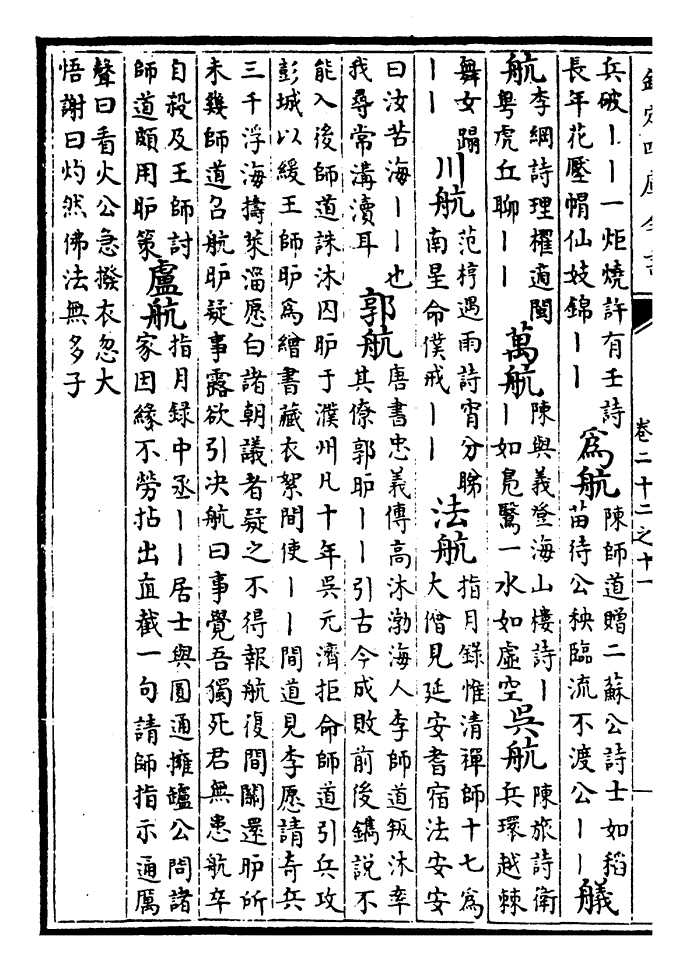 欽定四庫全書
卷二十二之十一
兵破丨丨一炬燒許有壬詩
長年花壓帽仙妓錦丨丨
爲航
陳師道贈二蘇公詩士如稻
苗待公秧臨流不渡公丨丨
艤
航
李綱詩理櫂適閩
粤虎丘聊丨丨
萬航
陳與義登海山樓詩丨
丨如鳧鷖一水如虛空
吳航
陳旅詩衛
兵環越棘
舞女蹋
丨丨
川航
范梈遇雨詩宵分睇
南星命僕戒丨丨
法航
指月錄惟清禪師十七爲
大僧見延安耆宿法安安
曰汝苦海丨丨也
我尋常溝瀆耳
郭航
唐書忠義傳高沐渤海人李師道叛沐率
其僚郭昈丨丨引古今成敗前後鐫說不
能入後師道誅沐囚昈于濮州凡十年吳元濟拒命師道引兵攻
彭城以緩王師昈爲繪書藏衣絮間使丨丨間道見李愿請奇兵
三千浮海擣萊淄愿白諸朝議者疑之不得報航復間關還昈所
未幾師道召航昈疑事露欲引決航曰事覺吾獨死君無患航卒
自殺及王師討
師道頗用昈策
盧航
指月録中丞丨丨居士與圓通擁罏公問諸
家因緣不勞拈出直截一句請師指示通厲
聲曰看火公急撥衣忽大
悟謝曰灼然佛法無多子